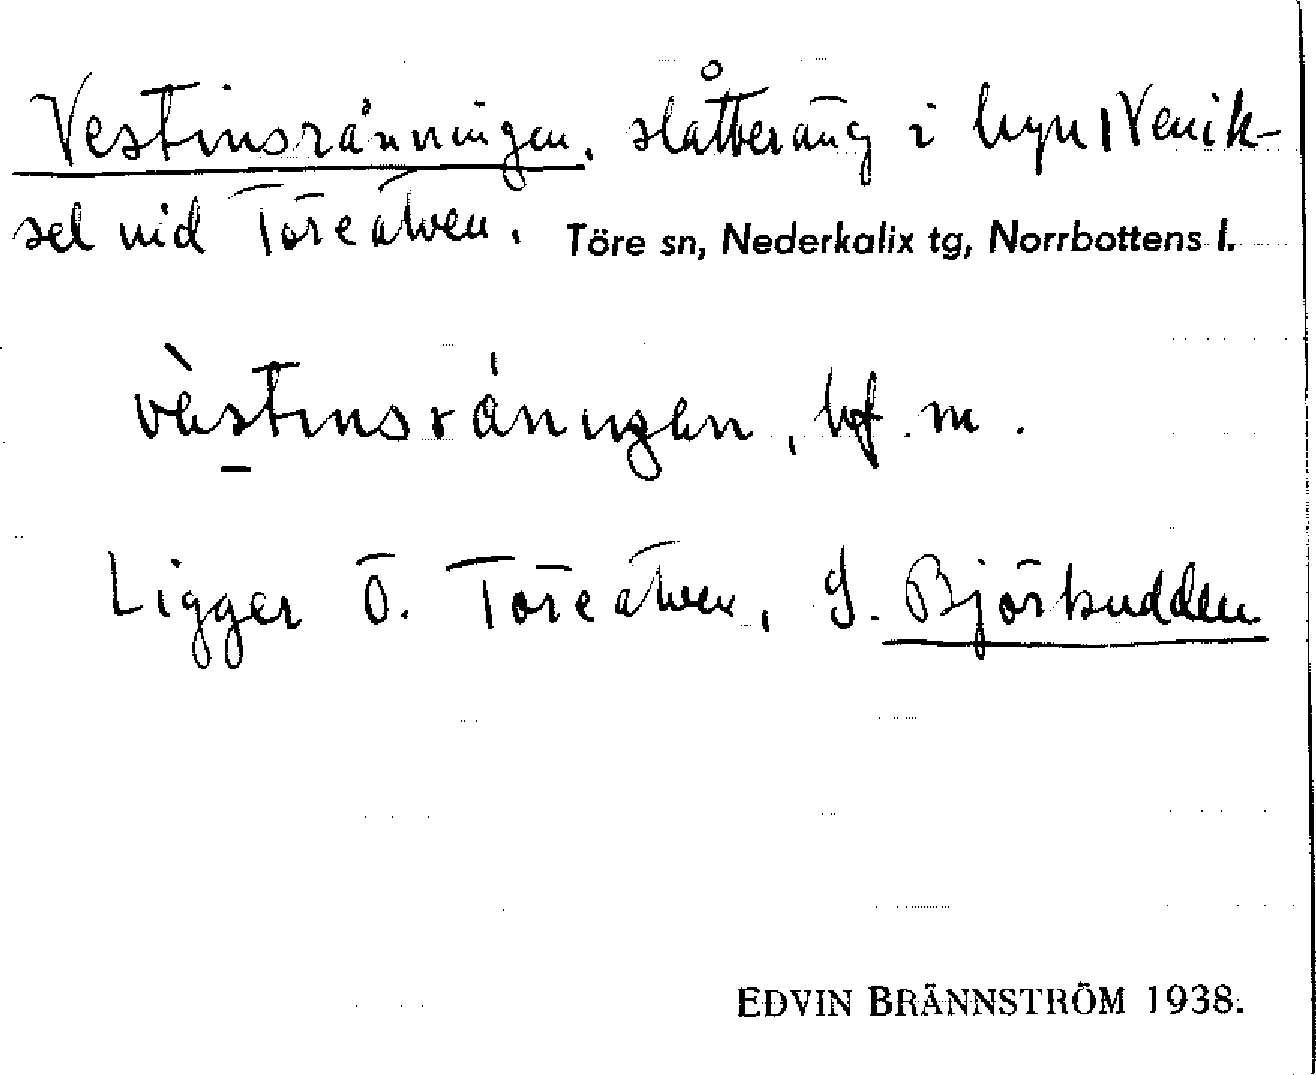 Vestinsränningen, slåtteräng i byn Venik-
sel vid Töreälven. Töre sn, Nederkalix tg, Norrbottens l.
vèstinsräningen, bf. m.
Ligger Ö. Töreälven, S. Björkudden
EDVIN BRÄNNSTRÖM 1938.